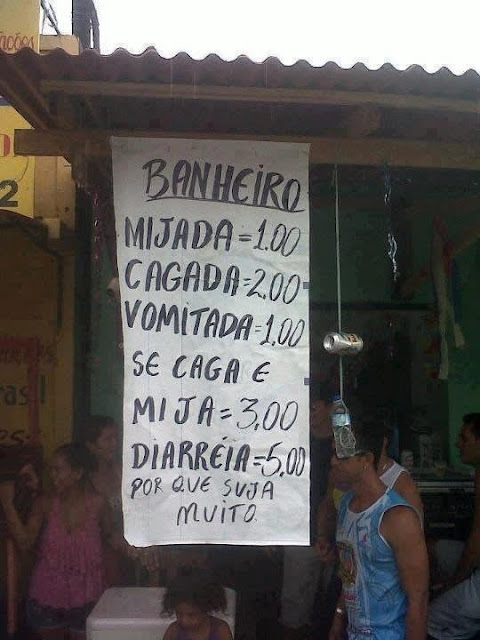 ções
2
BANHEIRO
MIJADA = 1.00
CAGADA = 2.00
VOMITADA = 1,00
SE CAGA E
MIJA = 3,00
DIARRÉIA = 5,00
POR QUE SUJA
MUITO.